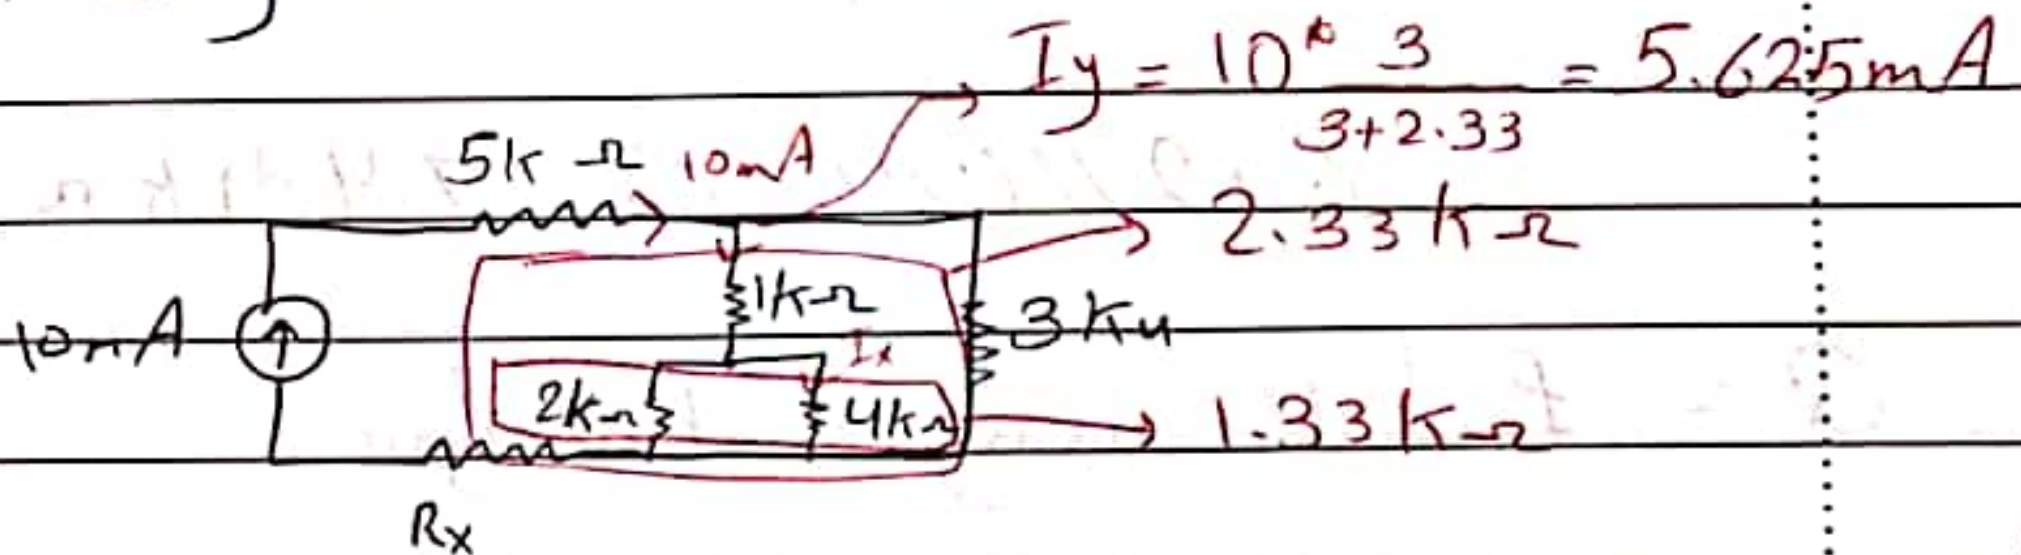 Iy = 10 * 3 / 3+2.33 = 5.625mA
5k Ω 10mA
2.33 KΩ
1KΩ
10mA
3 Ku
Ix
2KΩ 4KΩ
1.33 KΩ
Rx